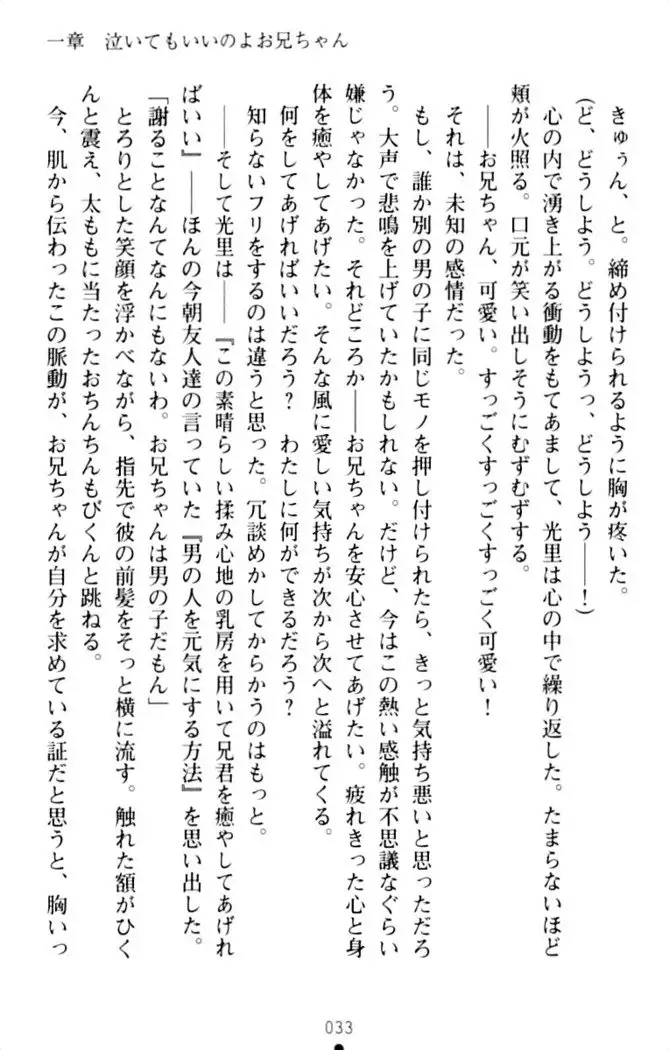 一章　泣いてもいいのよお兄ちゃん
　きゅぅん、と。締め付けられるように胸が疼いた。
（ど、どうしよう。どうしようっ、どうしよう――！）
　心の内で湧き上がる衝動をもてあまして、光里は心の中で繰り返した。たまらないほど
頬が火照る。口元が笑い出しそうにむずむずする。
　――お兄ちゃん、可愛い。すっごくすっごくすっごく可愛い！
　それは、未知の感情だった。
　もし、誰か別の男の子に同じモノを押し付けられたら、きっと気持ち悪いと思っただろ
う。大声で悲鳴を上げていたかもしれない。だけど、今はこの熱い感触が不思議なぐらい
嫌じゃなかった。それどころか――お兄ちゃんを安心させてあげたい。疲れきった心と身
体を癒やしてあげたい。そんな風に愛しい気持ちが次から次へと溢れてくる。
　何をしてあげればいいだろう？　わたしに何ができるだろう？
　知らないフリをするのは違うと思った。冗談めかしてからかうのはもっと。
　――そして光里は――『この素晴らしい揉み心地の乳房を用いて兄君を癒やしてあげれ
ばいい』――ほんの今朝友人達の言っていた『男の人を元気にする方法』を思い出した。
「謝ることなんてなんにもないわ。お兄ちゃんは男の子だもん」
　とろりとした笑顔を浮かべながら、指先で彼の前髪をそっと横に流す。触れた額がひく
んと震え、太ももに当たったおちんちんもびくんと跳ねる。
　今、肌から伝わったこの脈動が、お兄ちゃんが自分を求めている証だと思うと、胸いっ
033